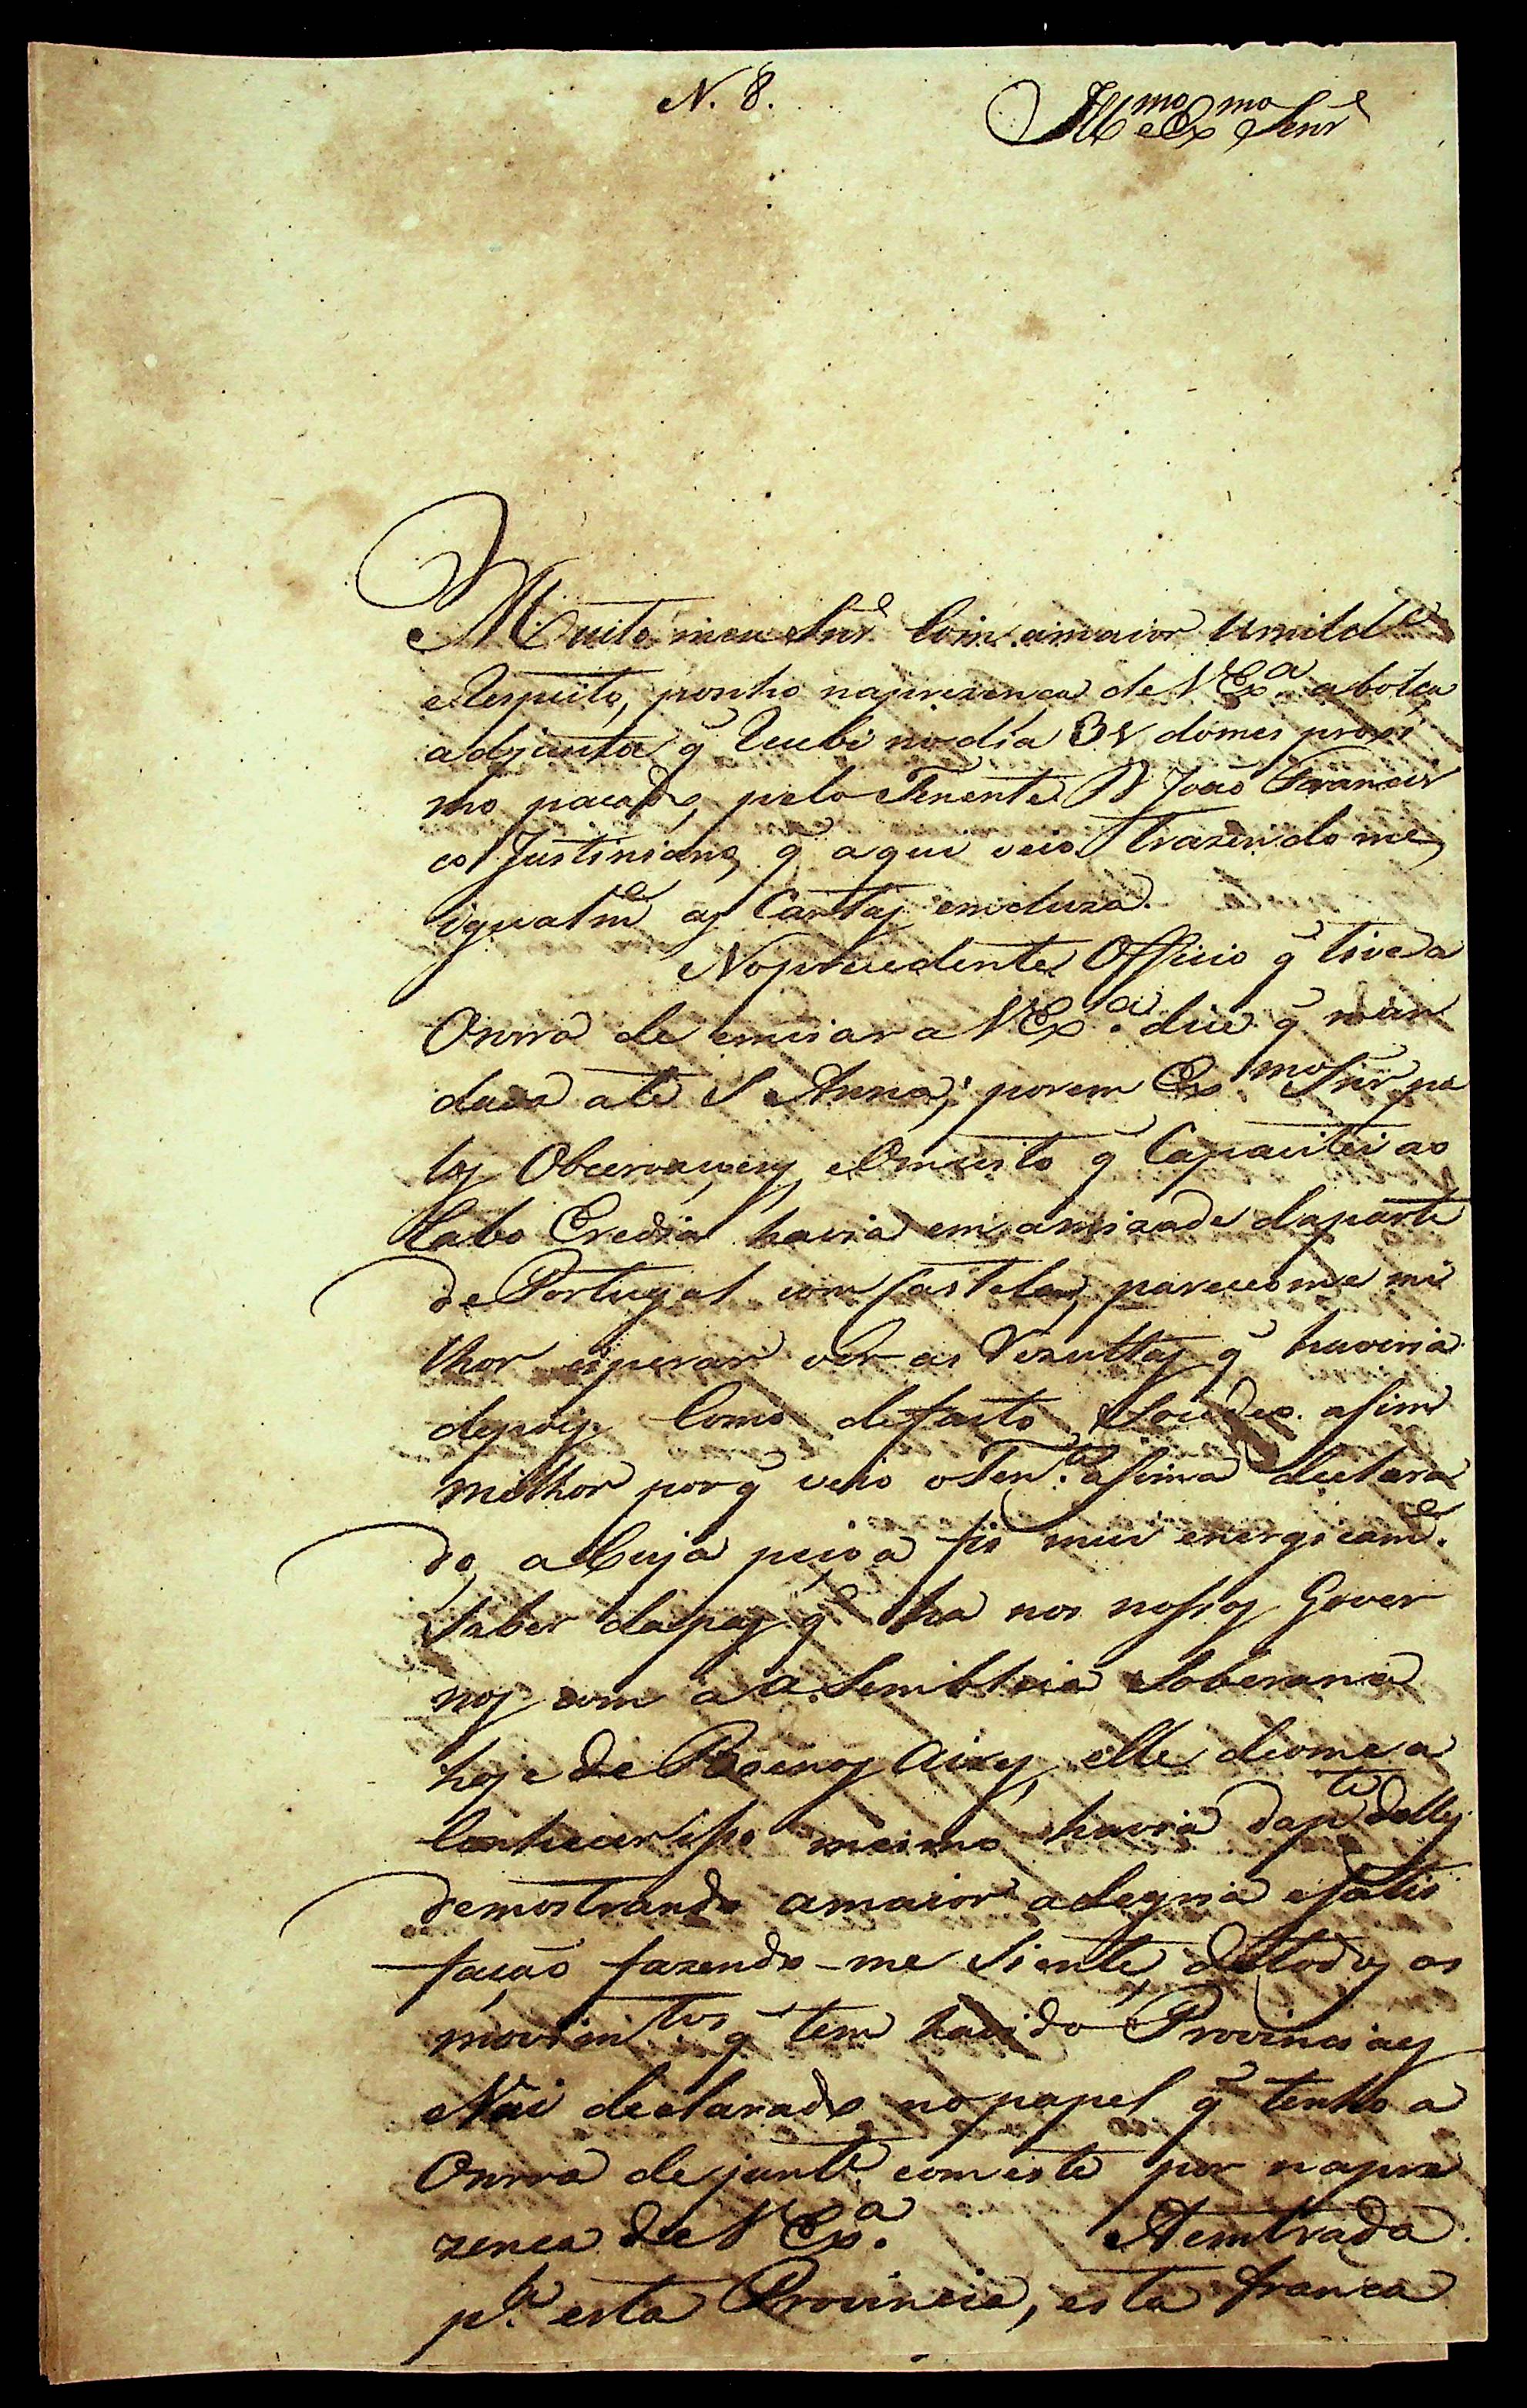 N. 8.
Ill^mo e Ex^mo Senr^e
Muito meu Snr^e Com amaior umild^e
eRespeito, ponho naprezenca de VEx^a. abolça
adjunta q̃ Recebi nodia 31 domes proxi
mo pacado, pelo Tenente D João Francis
co Justiniano, q̃ aqui veio trazendo me
igualm^e as Cartas emcluza.
Noprecedente Officio q̃ tive a
Onrra de enviar a VEx^a. dice q̃ man
dava até S Anna; porem Ex^mo Snr pe
las Obcervaçoens, eOmuito q̃ Capacitei ao
Cabo Eredia havia em amizade daparte
de Portugal com Castelan, pareceome mi
lhor esperar ver as Rezultas q̃ haveria
depois. Como defacto Sucedeo. asim
melhor porq̃ veio oTen^te. asima declara
do, aCuja peçoa fis mui energicam^e.
Saber dapas q̃ ha nos nossos Gover
nos com a aSembleia Soberana
hoje de Buenos Aires, elle deome a
Conhecer isso mesmo havia dap^te delles
demostrando amaior alegria eSatis
facão fazendo-me Siente, detodos os
movim^tos q̃ tem havido Provincias
eVai declarado nopapel q̃ tenho a
Onrra dejunt^e. comeste por napre
zenca de VEx^a. Aemtrada
p^a. esta Provincia, esta franca